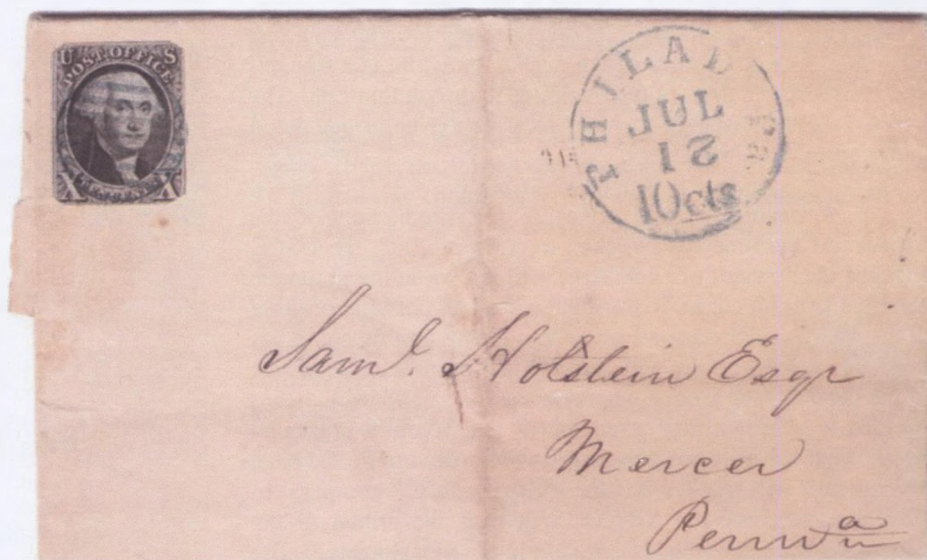 U S
POST OFFICE
X X
PHILAD Pa
JUL
21
10cts
Saml. Holstein Esqr
Mercer
Pennᵃ